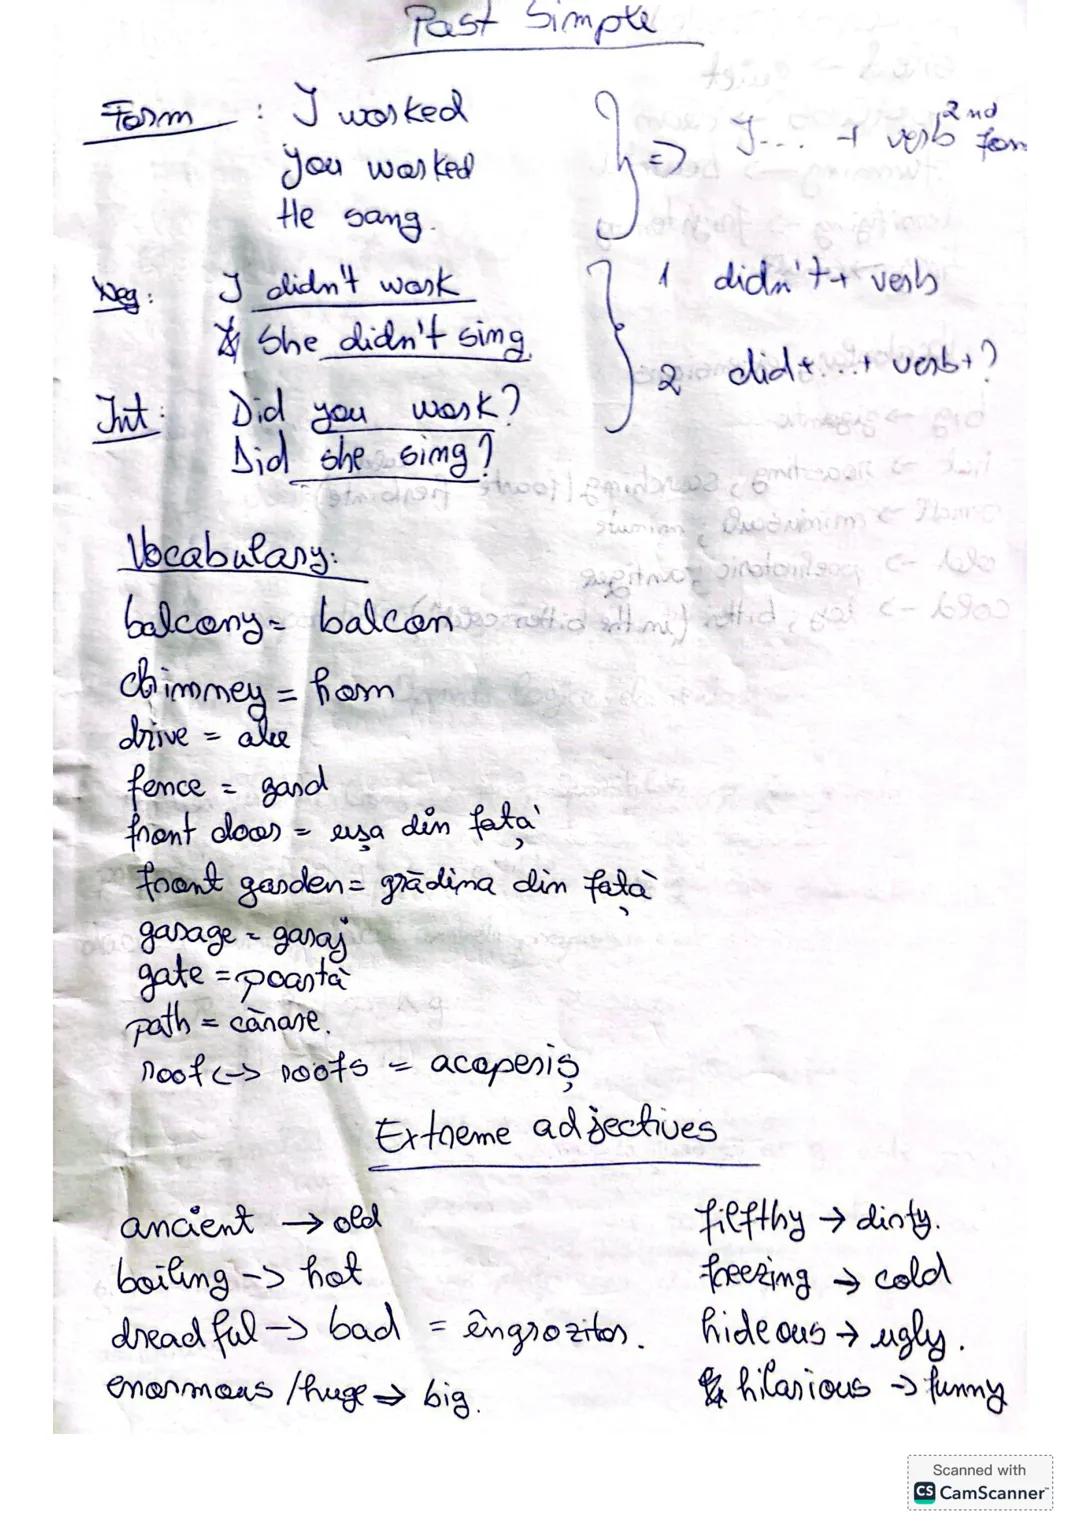 Past Simple
Form : I worked
you worked
He sang.
} => I... + verb 2nd form
Neg: I didn't work
She didn't sing
Int: Did you work?
Did she sing?
1 didn't + verb
2 did + ... + verb + ?
Vocabulary:
balcony = balcon
chimney = horn
drive = alee
fence = gard
front door = ușa din față
front garden = grădina din față
garage = garaj
gate = poartă
path = cărare.
roof <-> roofs = acoperiș
Extreme adjectives
ancient -> old
boiling -> hot
dreadful -> bad = îngrozitor.
enormous / huge -> big.
filfthy -> dirty.
freezing -> cold
hideous -> ugly.
hilarious -> funny
Scanned with
CS CamScanner